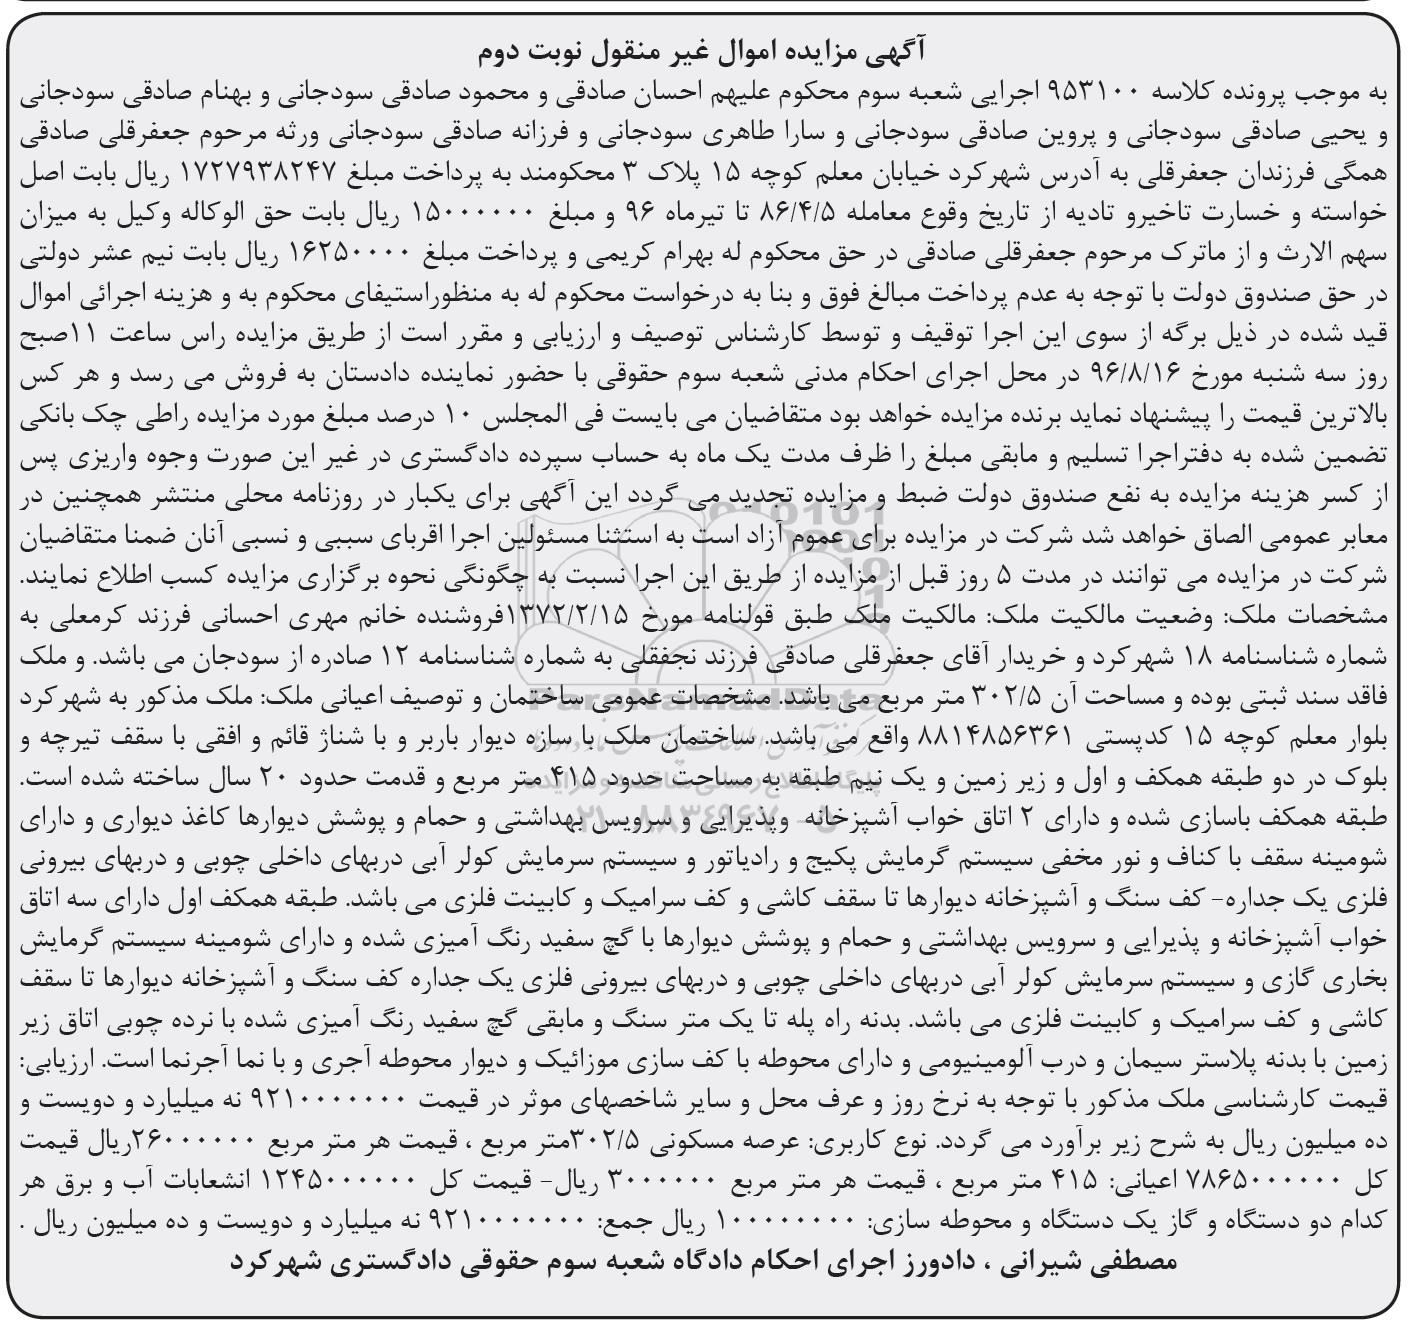 آگهی مزایده اموال غیر منقول نوبت دوم
به موجب پرونده کلاسه ۹۵۳۱۰۰ اجرایی شعبه سوم محکوم علیهم احسان صادقی و محمود صادقی سودجانی و بهنام صادقی سودجانی
و یحیی صادقی سودجانی و پروین صادقی سودجانی و سارا طاهری سودجانی و فرزانه صادقی سودجانی ورثه مرحوم جعفرقلی صادقی
همگی فرزندان جعفرقلی به آدرس شهرکرد خیابان معلم کوچه ۱۵ پلاک ۳ محکومند به پرداخت مبلغ ۱۷۲۷۹۳۸۲۴۷ ریال بابت اصل
خواسته و خسارت تاخیرو تادیه از تاریخ وقوع معامله ۸۶/۴/۵ تا تیرماه ۹۶ و مبلغ ۱۵۰۰۰۰۰۰ ریال بابت حق الوکاله وکیل به میزان
سهم الارث و از ماترک مرحوم جعفرقلی صادقی در حق محکوم له بهرام کریمی و پرداخت مبلغ ۱۶۲۵۰۰۰۰ ریال بابت نیم عشر دولتی
در حق صندوق دولت با توجه به عدم پرداخت مبالغ فوق و بنا به درخواست محکوم له به منظوراستیفای محکوم به و هزینه اجرائی اموال
قید شده در ذیل برگه از سوی این اجرا توقیف و توسط کارشناس توصیف و ارزیابی و مقرر است از طریق مزایده راس ساعت ۱۱صبح
روز سه شنبه مورخ ۹۶/۸/۱۶ در محل اجرای احکام مدنی شعبه سوم حقوقی با حضور نماینده دادستان به فروش می رسد و هر کس
بالاترین قیمت را پیشنهاد نماید برنده مزایده خواهد بود متقاضیان می بایست فی المجلس ۱۰ درصد مبلغ مورد مزایده راطی چک بانکی
تضمین شده به دفتراجرا تسلیم و مابقی مبلغ را ظرف مدت یک ماه به حساب سپرده دادگستری در غیر این صورت وجوه واریزی پس
از کسر هزینه مزایده به نفع صندوق دولت ضبط و مزایده تجدید می گردد این آگهی برای یکبار در روزنامه محلی منتشر همچنین در
معابر عمومی الصاق خواهد شد شرکت در مزایده برای عموم آزاد است به استثنا مسئولین اجرا اقربای سببی و نسبی آنان ضمنا متقاضیان
شرکت در مزایده می توانند در مدت ۵ روز قبل از مزایده از طریق این اجرا نسبت به چگونگی نحوه برگزاری مزایده کسب اطلاع نمایند.
مشخصات ملک: وضعیت مالکیت ملک: مالکیت ملک طبق قولنامه مورخ ۱۳۷۲/۲/۱۵فروشنده خانم مهری احسانی فرزند کرمعلی به
شماره شناسنامه ۱۸ شهرکرد و خریدار آقای جعفرقلی صادقی فرزند نجفقلی به شماره شناسنامه ۱۲ صادره از سودجان می باشد. و ملک
فاقد سند ثبتی بوده و مساحت آن ۳۰۲/۵ متر مربع می باشد. مشخصات عمومی ساختمان و توصیف اعیانی ملک: ملک مذکور به شهرکرد
بلوار معلم کوچه ۱۵ کدپستی ۸۸۱۴۸۵۶۳۶۱ واقع می باشد. ساختمان ملک با سازه دیوار باربر و با شناژ قائم و افقی با سقف تیرچه و
بلوک در دو طبقه همکف و اول و زیر زمین و یک نیم طبقه به مساحت حدود ۴۱۵ متر مربع و قدمت حدود ۲۰ سال ساخته شده است.
طبقه همکف باسازی شده و دارای ۲ اتاق خواب آشپزخانه وپذیرایی و سرویس بهداشتی و حمام و پوشش دیوارها کاغذ دیواری و دارای
شومینه سقف با کناف و نور مخفی سیستم گرمایش پکیج و رادیاتور و سیستم سرمایش کولر آبی دربهای داخلی چوبی و دربهای بیرونی
فلزی یک جداره- کف سنگ و آشپزخانه دیوارها تا سقف کاشی و کف سرامیک و کابینت فلزی می باشد. طبقه همکف اول دارای سه اتاق
خواب آشپزخانه و پذیرایی و سرویس بهداشتی و حمام و پوشش دیوارها با گچ سفید رنگ آمیزی شده و دارای شومینه سیستم گرمایش
بخاری گازی و سیستم سرمایش کولر آبی دربهای داخلی چوبی و دربهای بیرونی فلزی یک جداره کف سنگ و آشپزخانه دیوارها تا سقف
کاشی و کف سرامیک و کابینت فلزی می باشد. بدنه راه پله تا یک متر سنگ و مابقی گچ سفید رنگ آمیزی شده با نرده چوبی اتاق زیر
زمین با بدنه پلاستر سیمان و درب آلومینیومی و دارای محوطه با کف سازی موزائیک و دیوار محوطه آجری و با نما آجرنما است. ارزیابی:
قیمت کارشناسی ملک مذکور با توجه به نرخ روز و عرف محل و سایر شاخصهای موثر در قیمت ۹۲۱۰۰۰۰۰۰۰ نه میلیارد و دویست و
ده میلیون ریال به شرح زیر برآورد می گردد. نوع کاربری: عرصه مسکونی ۳۰۲/۵متر مربع ، قیمت هر متر مربع ۲۶۰۰۰۰۰۰ریال قیمت
کل ۷۸۶۵۰۰۰۰۰۰ اعیانی: ۴۱۵ متر مربع ، قیمت هر متر مربع ۳۰۰۰۰۰۰ ریال- قیمت کل ۱۲۴۵۰۰۰۰۰۰ انشعابات آب و برق هر
کدام دو دستگاه و گاز یک دستگاه و محوطه سازی: ۱۰۰۰۰۰۰۰۰ ریال جمع: ۹۲۱۰۰۰۰۰۰۰ نه میلیارد و دویست و ده میلیون ریال .
مصطفی شیرانی ، دادورز اجرای احکام دادگاه شعبه سوم حقوقی دادگستری شهرکرد
ParsNamadData
پایگاه اطلاع رسانی مناقصه و مزایده